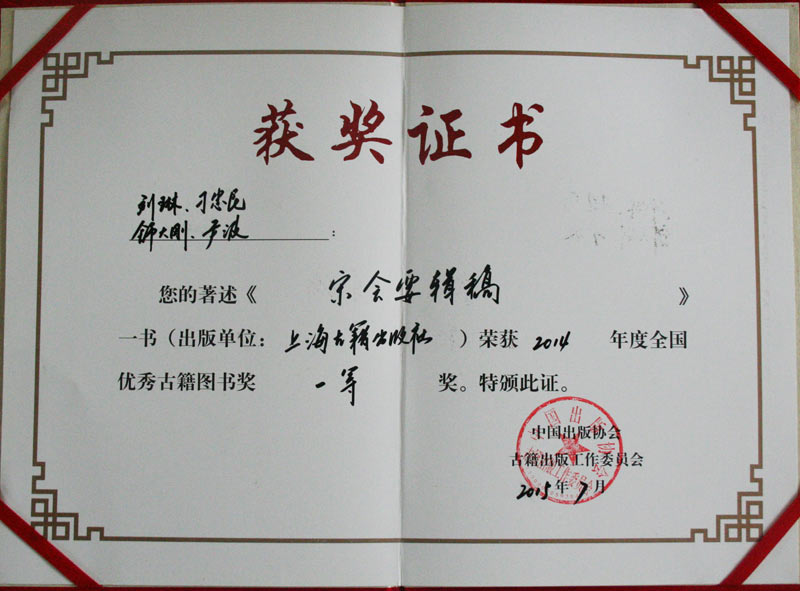 获奖证书
刘琳、刁忠民
舒大刚、尹波:
您的著述《宋会要辑稿》
一书(出版单位:上海古籍出版社)荣获2014年度全国
优秀古籍图书奖一等奖。特颁此证。
中国出版协会
古籍出版工作委员会
2015年7月